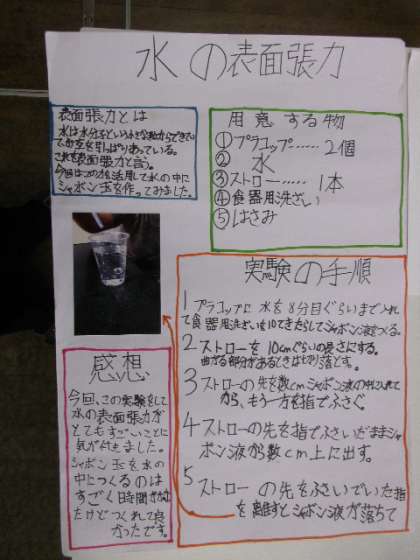 水の表面張力
表面張力とは
水は水分子という小さな粒からできてい
てお互を引っぱりあっている。
これを表面張力と言う。
今回はこの力を活用して水の中に
シャボン玉を作ってみました。
用意する物
①プラコップ……2個
② 水
③ストロー……1本
④食器用洗ざい
⑤はさみ
実験の手順
1 プラコップに水を8分目ぐらいまで入れ
て食器用洗ざいを10てきたらしてシャボン液をつくる。
2 ストローを10cmぐらいの長さにする。
曲がる部分があるときは切り落とす。
3 ストローの先を数cmシャボン液の中に入れて
から、もう一方を指でふさぐ。
4 ストローの先を指でふさいだままシャ
ボン液から数cm上に出す。
5 ストローの先をふさいでいた指
を離すとシャボン液が落ちて
感想
今回、この実験をして
水の表面張力が
とてもすごいことに
気が付きました。
シャボン玉を水の
中につくるのは
すごく時間がかかった
けどつくれて良
かったです。